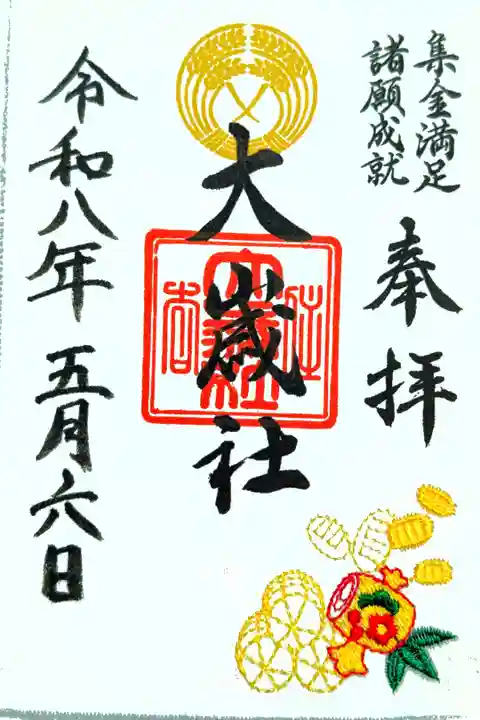 集金満足
諸願成就
奉拝
大歳社
令和八年五月六日